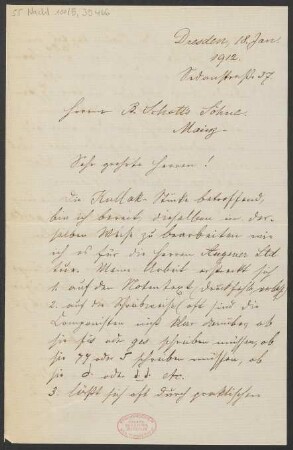 55 Nachl 100/B, 30466
Dresden, 18. Jan
1912.
Sedanstraße 37.
Herrn B. Schotts Söhne
Mainz.
Sehr geehrte Herren!
Die Kullak-Stücke betreffend,
bin ich bereit dieselben in der-
selben Weise zu bearbeiten wie
ich es für die Herren Augener Ltd
tue. Meine Arbeit erstreckt sich
1. auf den Notentext,
2. auf die Schreibweise, oft sind die
Componisten nicht klar darüber, ob
sie fis oder ges schreiben müssen, ob
sie 77 oder 5 schreiben müssen, ob
sie d oder d. d. etc.
3. läßt sich oft durch praktischen